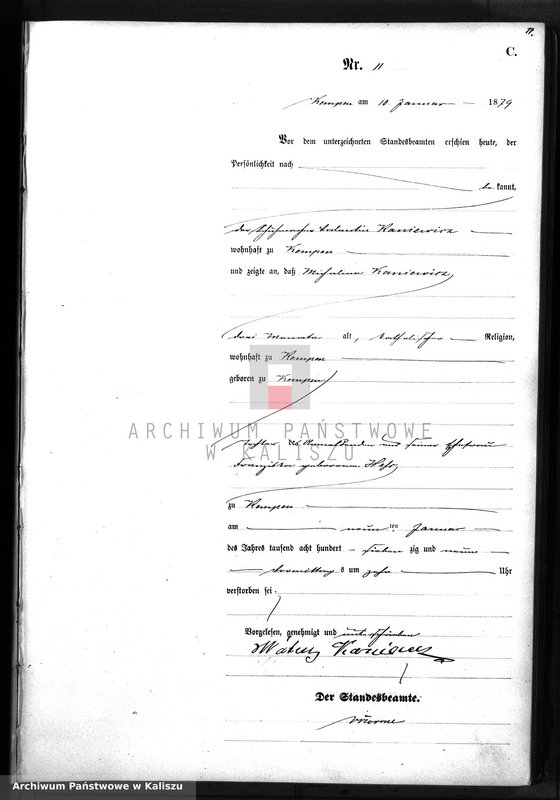 11.
C.
Nr. 11
Kempen am 10. Januar 1879
Vor dem unterzeichneten Standesbeamten erschien heute, der
Persönlichkeit nach
be kannt,
der Schuhmacher Kaniewicz
wohnhaft zu Kempen
und zeigte an, daß Michalina Kaniewicz
drei Monate alt, katholischer Religion,
wohnhaft zu Kempen
geboren zu Kempen
ARCHIWUM PAŃSTWOWE
W KALISZU
Tochter des Anmeldenden und seiner Ehefrau
Franziska geborenen
zu Kempen
am neun ten Januar
des Jahres tausend acht hundert sieben zig und neun
Vormittag s um zehn Uhr
verstorben sei.
Vorgelesen, genehmigt und unterschrieben
Der Standesbeamte.
Archiwum Państwowe w Kaliszu